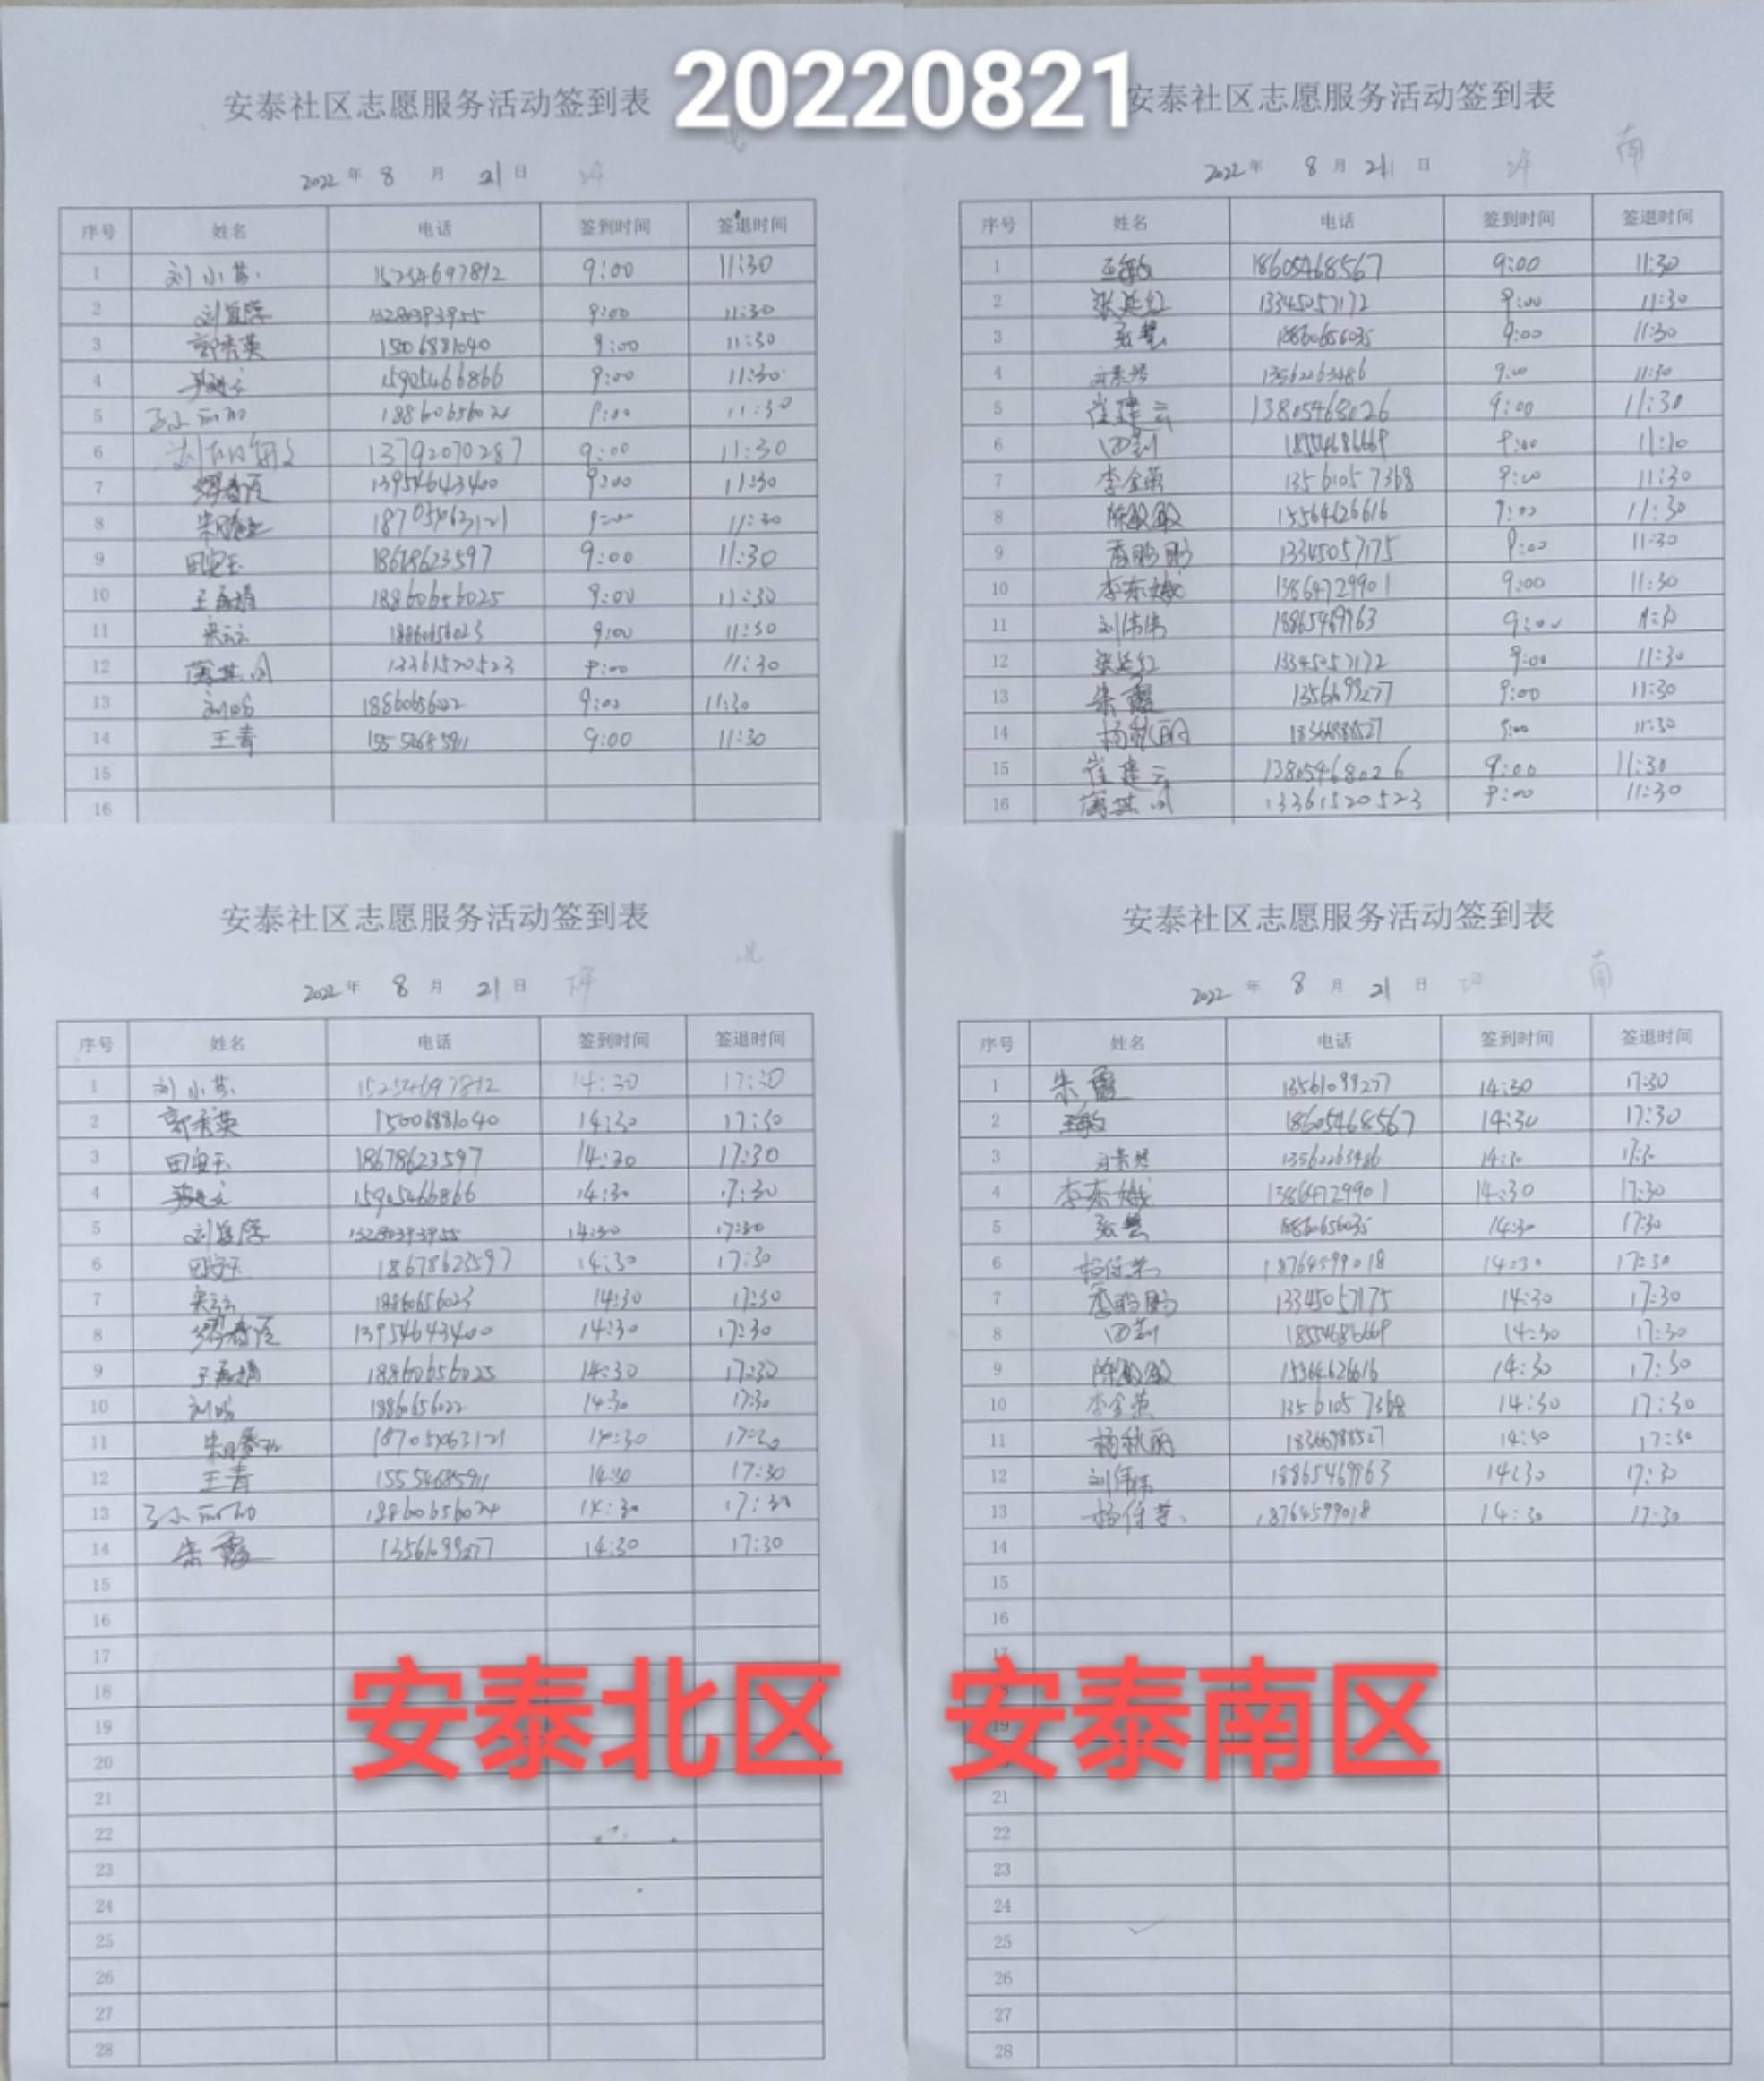 20220821
安泰社区志愿服务活动签到表
2022年 8 月 21 日
序号 姓名 电话 签到时间 签退时间
1 刘小芬 15254697812 9:00 11:30
2 9:00 11:30
3 郭秀英 15006881040 9:00 11:30
4 15905466866 9:00 11:30
5 18860656024 9:00 11:30
6 13792070287 9:00 11:30
7 13954643400 9:00 11:30
8 18705463121 9:00 11:30
9 田安玉 18678623597 9:00 11:30
10 18860656025 9:00 11:30
11 宋云云 18860656023 9:00 11:30
12 13361520523 9:00 11:30
13 18860656022 9:00 11:30
14 王青 15554685911 9:00 11:30
15
16
安泰社区志愿服务活动签到表
南
2022年 8 月 21 日
序号 姓名 电话 签到时间 签退时间
1 18605468567 9:00 11:30
2 张延红 13345057172 9:00 11:30
3 18860656035 9:00 11:30
4 13562263486 9:00 11:30
5 崔建云 13805468026 9:00 11:30
6 9:00
7 李金荣 13561057368 9:00 11:30
8 陈敏敏 15564626616 9:00 11:30
9 13345057175 9:00 11:30
10 李东娥 13864729901 9:00 11:30
11 刘伟伟 18865469963 9:00
12 张延红 13345057172 9:00 11:30
13 朱霞 13561099277 9:00 11:30
14 杨秋丽 18366988527 9:00 11:30
15 崔建云 13805468026 9:00 11:30
16 13361520523 9:00 11:30
安泰社区志愿服务活动签到表
2022年 8 月 21 日
序号 姓名 电话 签到时间 签退时间
1 刘小芬 15254697812 14:30 17:30
2 郭秀英 15006881040 14:30 17:30
3 田安玉 18678623597 14:30 17:30
4 15905466866 14:30 17:30
5 14:30 17:30
6 田安玉 18678623597 14:30 17:30
7 宋云云 18860656023 14:30 17:30
8 13954643400 14:30 17:30
9 18860656025 14:30 17:30
10 18860656022 14:30 17:30
11 18705463121 14:30 17:30
12 王青 15554685911 14:30 17:30
13 18860656024 14:30 17:30
14 朱霞 13561099277 14:30 17:30
15
16
17
18
19
20
21
22
23
24
25
26
27
28
安泰北区
安泰社区志愿服务活动签到表
南
2022年 8 月 21 日
序号 姓名 电话 签到时间 签退时间
1 朱霞 13561099277 14:30 17:30
2 18605468567 14:30 17:30
3 13562263486 14:30 17:30
4 李东娥 13864729901 14:30 17:30
5 18860656035 14:30 17:30
6 18764599018 14:30 17:30
7 13345057175 14:30 17:30
8 14:30 17:30
9 陈敏敏 15564626616 14:30 17:30
10 李金荣 13561057368 14:30 17:30
11 杨秋丽 18366988527 14:30 17:30
12 刘伟伟 18865469963 14:30 17:30
13 18764599018 14:30 17:30
14
15
16
17
19
21
22
23
24
25
26
27
28
安泰南区